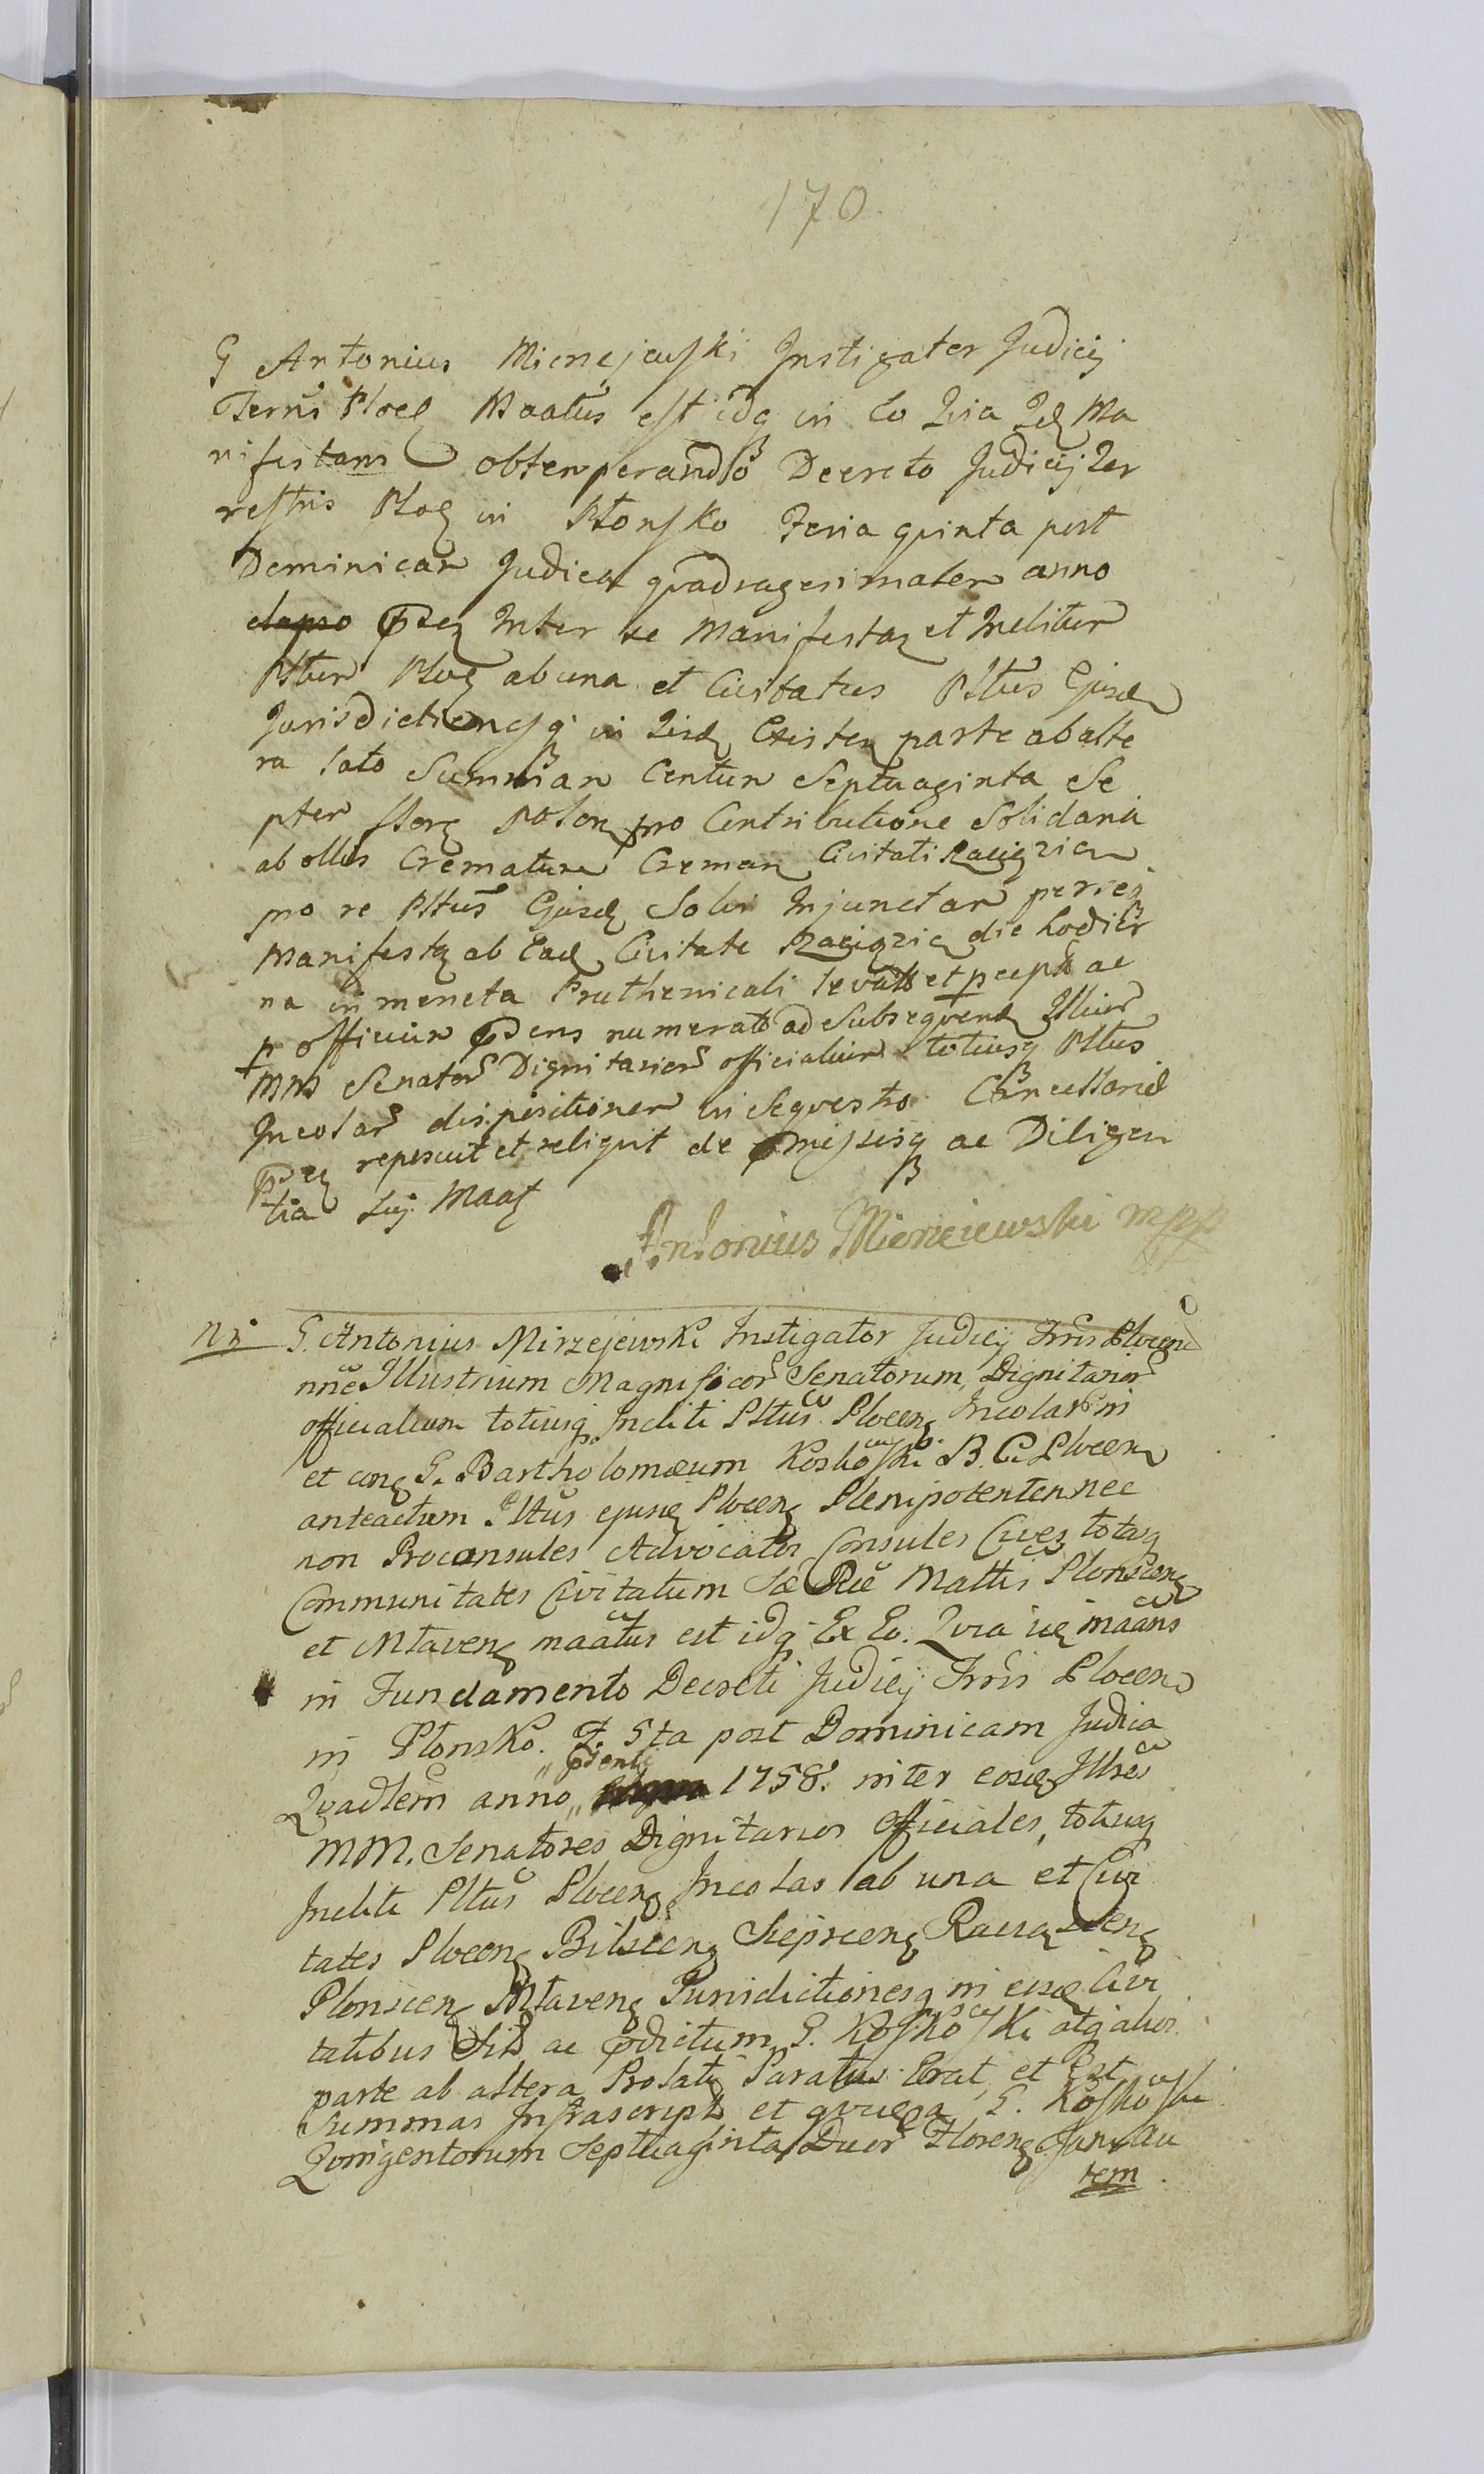 170
G Antonius Mierzejewski Instigator Judicij
Terris Ploc Maatus est idq in Eo Quia Id Ma
nifestans obtemperando Decreto Judicij Ter
restris Ploc in Płonsko Feria quinta post
Dominicam Judica quadragesimalem anno
Inter se Manifestan et Inclitum
Pltum Ploc ab una et Civitates Pltus Ejusd
Jurisdictionesq in Iisd Existen parte ab alte
ra lato Summam Centum Septuaginta Se
ptem flor Polon pro Contributione Solidaria
ab ollis Crematura Creman Civitati Raciązien
pro re Pltus Ejusd Solvi Injunctam per
Manifestan ab Ead Civitate Raciązien die hodier
na in moneta Pruthenicali levatt et pcept ac
p officium numerat ad Subsequend Illium
MM Senator Dignitarior officialium totiusq Pltus
Incolar dispositionem in Sequestro Cancellariae
reposuit et reliquit de pmissisq ac Diligen
tia Sui Maat
Antonius Mierzeiewski mpp
G. Antonius Mirzejewski Instigator Judicij Trris Plocen
nne Illustrium Magnificor Senatorum, Dignitarior
officialium totiusq Incliti Pltus Plocen Incolar in
et con G. Bartholomæum Koskowski B. C. Plocen
anteactum Pltus ejusd Plocen Plenipotentem nec
non Proconsules Advocatos Consules Cives totasq
Communitates Civitatum Sæ Ræ Mattis Plonscen
et Mlaven maatus est idq Ex Eo. Quia id maans
in Fundamento Decreti Judicij Trris Plocen
in Plonsko. F. 5ta post Dominicam Judica
Qvadlem anno psenti 1758. inter eosd Illres
MM. Senatores Dignitarios Officiales, totiusq
Incliti Pltus Plocen Incolas ab una et Civi
tates Plocen Bilscen Sieprcen Raciązen
Plonscen Mlaven Jurisdictionesq in eisd Civi
tatibus Sit ac pdictum G. Koskowski atq alios
parte ab altera Prolati Paratus Erat, et Est
Summas Infrascript et quidem a G. Koskowski
Quingentorum Septuaginta Duor Floren Jam au
tem